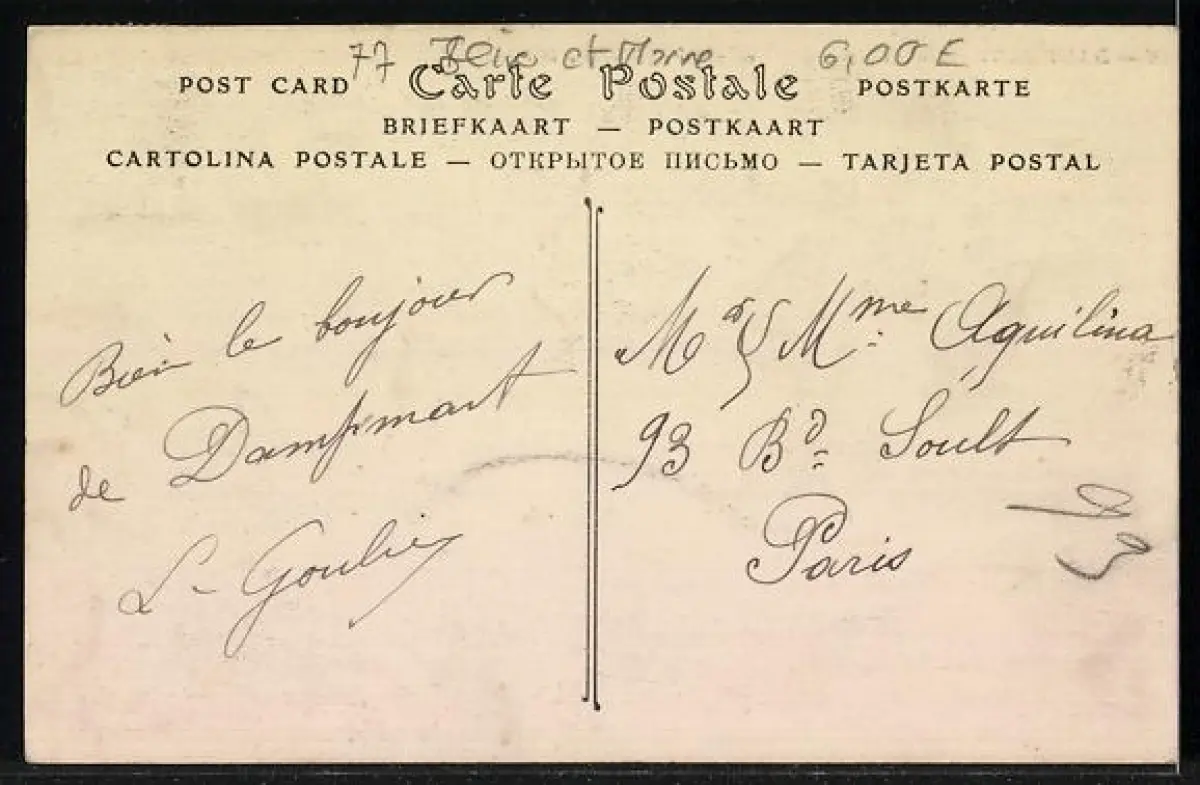 77 Seine et Marne 6,00 E
POST CARD Carte Postale POSTKARTE
BRIEFKAART — POSTKAART
CARTOLINA POSTALE — ОТКРЫТОЕ ПИСЬМО — TARJETA POSTAL
Bien le bonjour
de Dampmart
L-
Mr & Mme Aquilina
93 Bd Soult
Paris